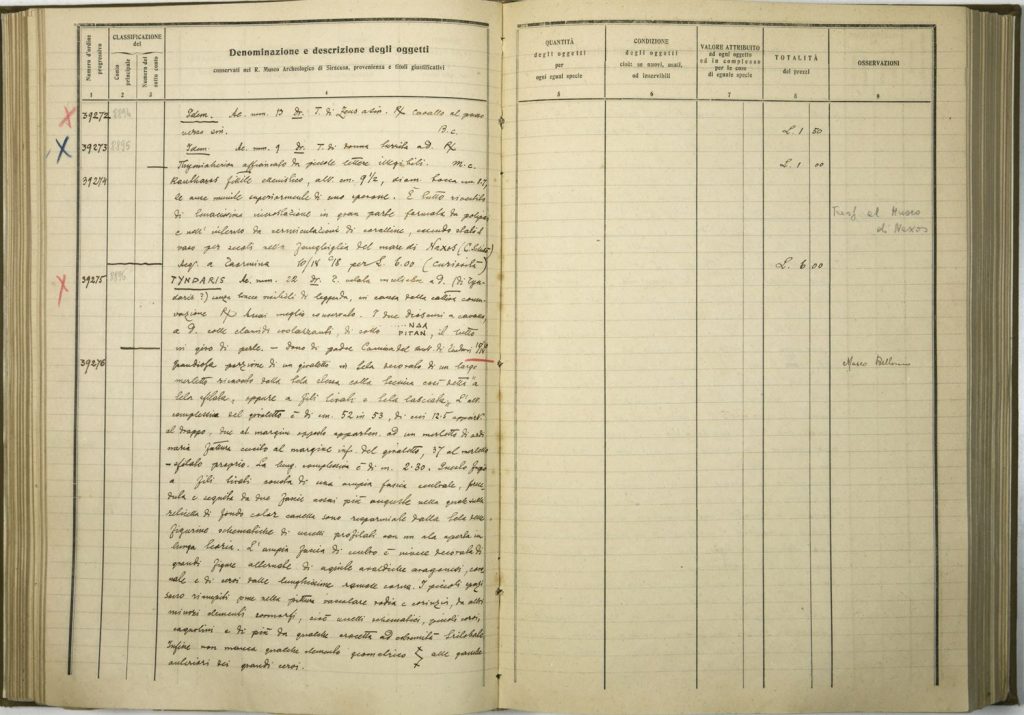 Numero d'ordine progressivo
CLASSIFICAZIONE del
Conto principale
Numero del sotto conto
Denominazione e descrizione degli oggetti
conservati nel R. Museo Archeologico di Siracusa, provenienza e titoli giustificativi
QUANTITÀ degli oggetti per ogni eguai specie
CONDIZIONE degli oggetti cioè: se nuovi, usati, od inservibili
VALORE ATTRIBUITO ad ogni oggetto ed in complesso per le cose di eguale specie
TOTALITÀ dei prezzi
OSSERVAZIONI
1 2 3 4 5 6 7 8 9
39272 8894 Idem. Ae. mm. 13 Dr. T. di Zeus a sin. Rx cavallo al passo
verso sin. B.c. L. 1 50
39273 8895 Idem. Ae. mm. 9 Dr. T. di donna turrita a D. Rx
Thymiaterion affiancato da piccole lettere illegibili. M.c. L. 1 00
39274 Kantharos fittile alt. cm. 9 1/2, diam. bocca cm. 8.7,
le anse munite superiormente di uno sperone. È tutto rivestito
di incrostazione in gran parte formata da polipai
e nell'interno da vermiculazioni di coralline, essendo stato il
vaso per secoli nella fanghiglia del mare di Naxos
Trasf. al Museo
di Naxos
Acq. a Taormina 10/IX 918 per L. 6.00 (curiosità) L. 6 00
39275 8896 TYNDARIS Ae. mm. 22 Dr. T. a D. (di Tyn-
daris?) senza tracce visibili di leggenda, in causa della cattiva conser-
vazione Rx assai meglio conservato. I due Dioscuri a cavallo
a D. colle clamidi svolazzanti, di sotto ....ΝΔΑ ΡΙΤΑΝ, il tutto
in giro di perle. – Dono di padre
39276 Grandiosa porzione di un giraletto in tela decorato di un largo
merletto ricavato dalla tela stessa colla tecnica così detta a
tela sfilata, oppure a fili tirati e tela lasciata. L'alt.
complessiva del giraletto è di cm. 52 in 53, di cui 12.5
al drappo, due al margine opposto apparten. ad un merletto di ordi
naria fattura cucito al margine inf. del giraletto, 37 al merletto
sfilato proprio. La lung. complessiva è di m. 2.30. Questo fregio
a fili tirati consta di una ampia fascia centrale, prece-
duta e seguita da due fascie assai più anguste nelle quali sulla
reticella di fondo color cannella sono risparmiate dalla tela delle
figurine schematiche di uccelli profilati con un ala aperta in
lunga teoria. L'ampia fascia di centro è invece decorata di
grandi figure alternate di aquile araldiche aragonesi,
e di cervi dalle lunghissime ramose corna. I piccoli spazi
sono riempiti come nella pittura vascolare rodia e corinzia, da altri
minori elementi zoomorfi, cioè uccelli schematici, piccoli cervi,
cagnolini e di più da qualche crocetta ad estremità trilobate.
Infine non manca qualche elemento geometrico alle gambe
anteriori dei grandi cervi.
Museo Bellomo